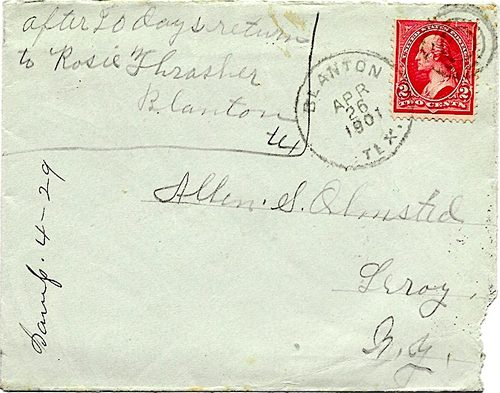 after 20 days return
to Rosie Thrasher
Blanton
Tex
BLANTON
APR
26
1901
TEX.
2 2
TWO CENTS
Allen. S. Olmsted
Leroy,
N.Y.
4-29